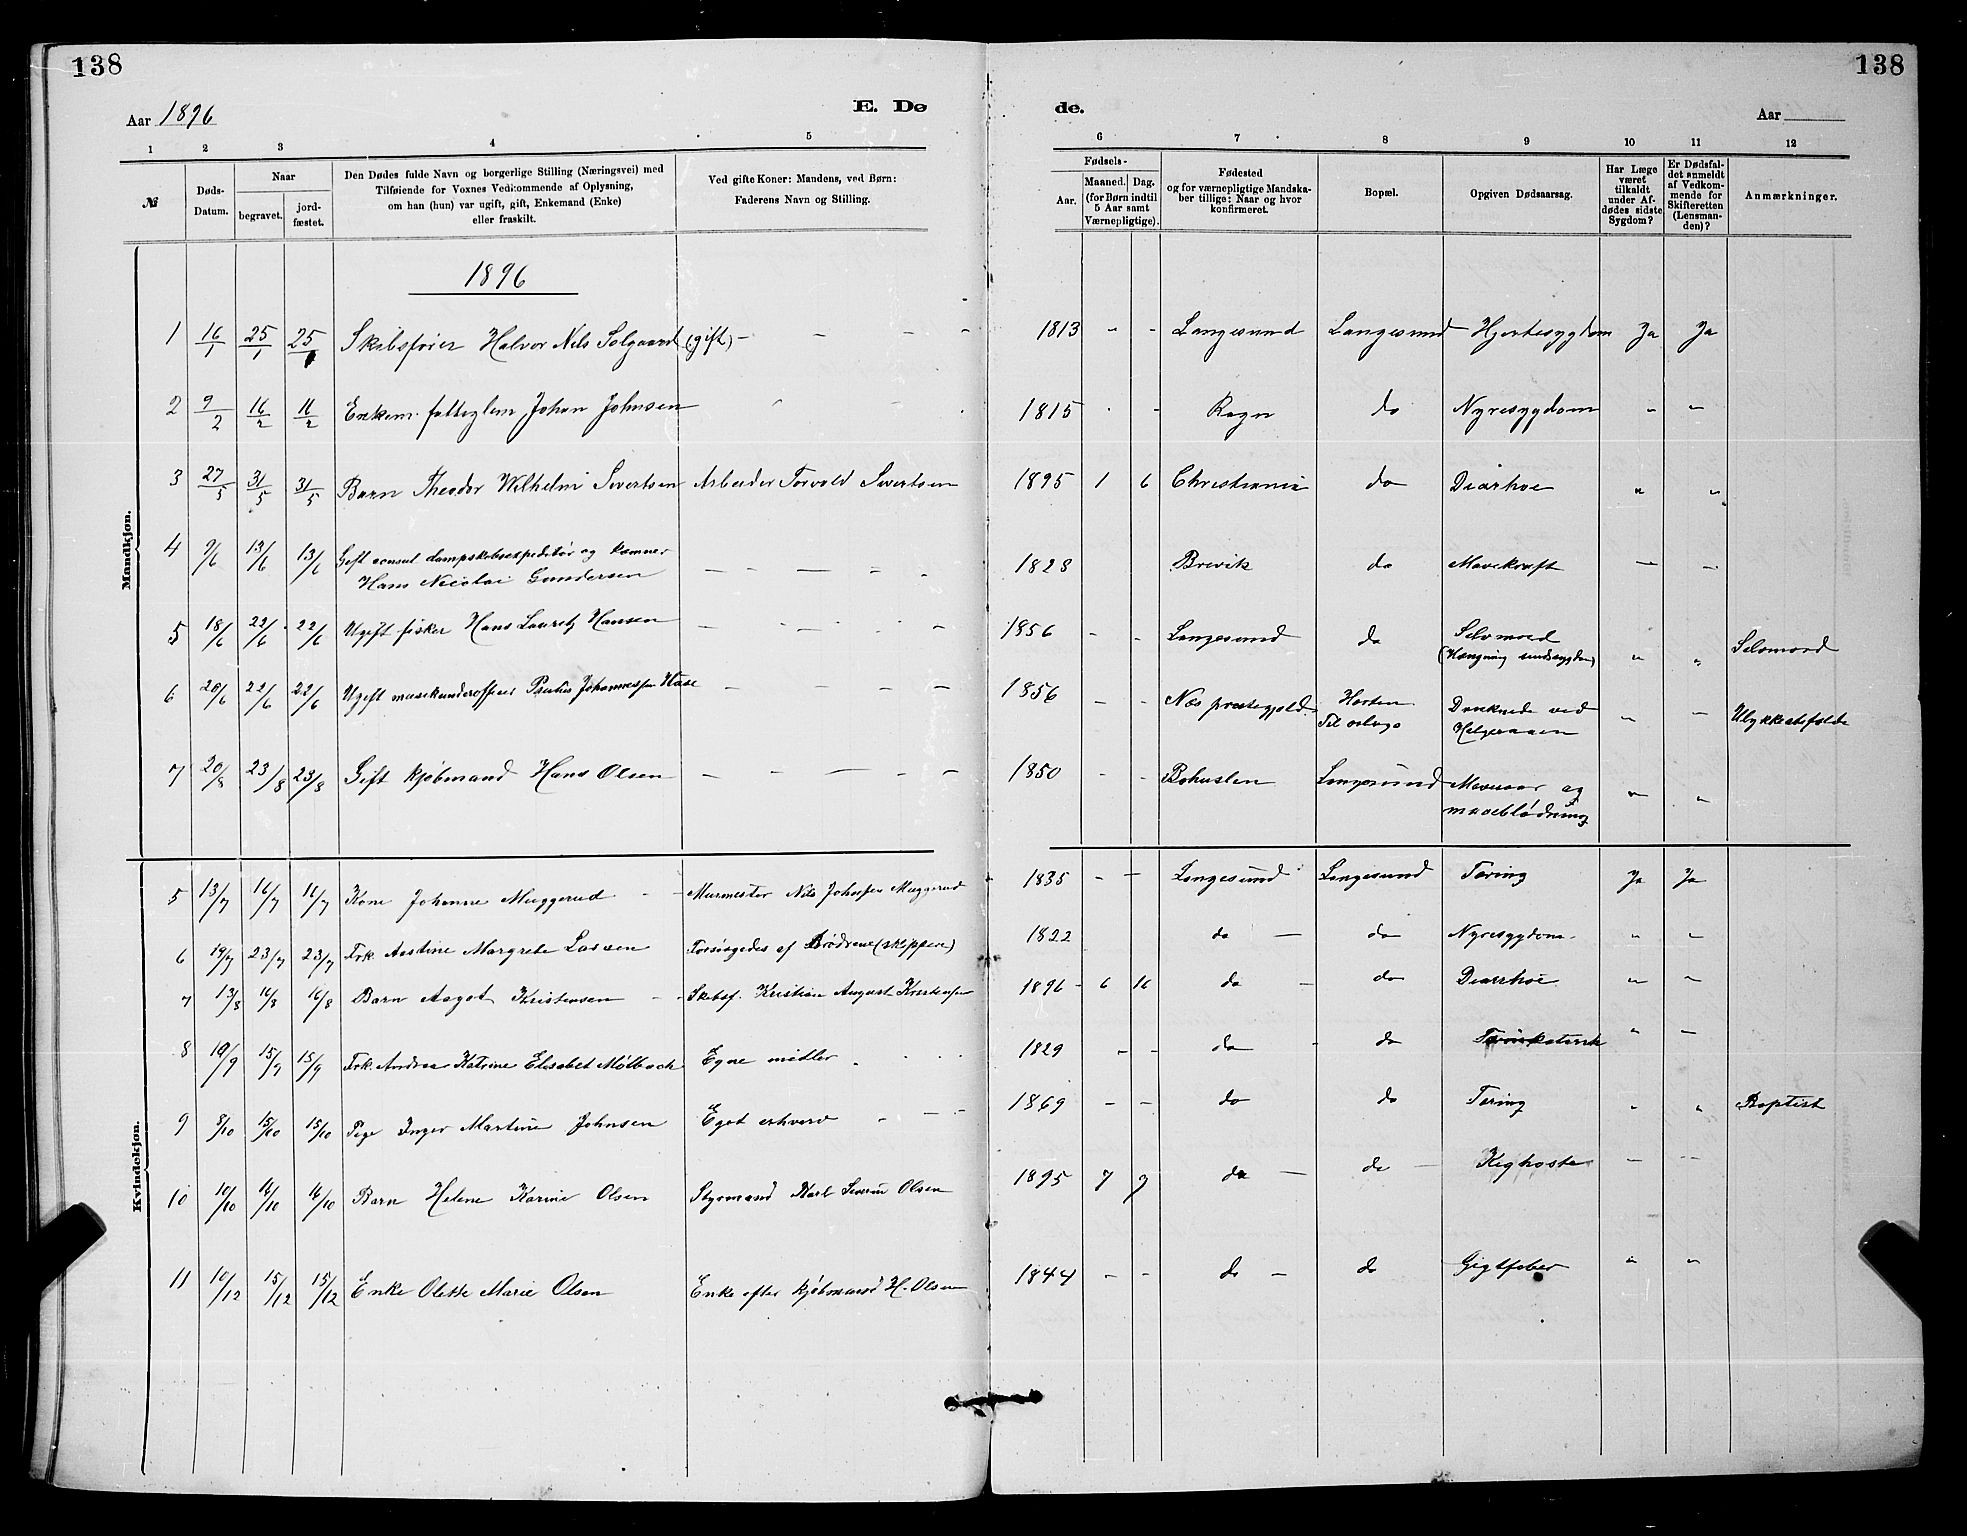 138
138
Aar 1896
E. Dø
de.
Aar
1 2 3 4 5 6 7 8 9 10 11 12
№
Døds-
Datum.
Naar
begravet.
jord-
fæstet.
Den Dødes fulde Navn og borgerlige Stilling (Næringsvei) med
Tilføiende for Voxnes Vedkommende af Oplysning,
om han (hun) var ugift, gift, Enkemand (Enke)
eller fraskilt.
Ved gifte Koner: Mandens, ved Børn:
Faderens Navn og Stilling.
Fødsels-
Aar.
Maaned. Dag.
(for Børn indtil
5 Aar samt
Værnepligtige).
Fødested
og for værnepligtige Mandska-
ber tillige: Naar og hvor
konfirmeret.
Bopæl.
Opgiven Dødsaarsag.
Har Læge
været
tilkaldt
under Af-
dødes sidste
Sygdom?
Er Dødsfal-
det anmeldt
af Vedkom-
mende for
Skifteretten
(Lensman-
den)?
Anmærkninger.
Mandkjøn.
1896
1 16/1 25/1 25/1 Skibsfører Halvor Nils Solgaard (gift) - - - - 1813 - - Langesund Langesund Hjertesygdom Ja Ja
2 9/2 16/2 16/2 Enkem. fattiglem Johan Johnsen 1815 - - do Nyresygdom " "
3 27/5 31/5 31/5 Barn Theodor Wilhelm Sivertsen Arbeider Torvald Sivertsen 1895 1 6 Christiania do Diarhoe " "
4 9/6 13/6 13/6 Gift consul dampskibsexpeditør og kæmner
Hans Nicolai Gundersen - - - - - 1828 Brevik do Mavekræft - -
5 18/6 22/6 22/6 Ugift fisker Hans Lauritz Hansen - - - - - 1856 - - Langesund do Selvmord
(Hængning sindssygdom) " " Selvmord
6 20/6 22/6 22/6 Ugift musikunderofficer Johannessen - - - - - 1856 - - Næs prestegjeld Horten
Til orlogs Druknede ved
Helgeraaen " - Ulykkestilfælde
7 20/8 23/8 23/8 Gift kjøbmand Hans Olsen - - - - - 1850 - - Bohuslen Langesund Mavesaar og
maveblødning " "
Kvindekjøn.
5 13/7 16/7 16/7 Kone Johanne Muggerud - - Murmester Nils Johnsen Muggerud 1835 - - Langesund Langesund Tæring Ja Ja
6 19/7 23/7 23/7 Frk. Margrete Lassen Forsørgedes af Brødrene (skippere) 1822 do - do Nyresygdom " -
7 13/8 16/8 16/8 Barn Aagot Kristensen - - Skibsf. Kristian August Kristensen 1896 - 6 16 do - do Diarrhoe " -
8 10/9 15/9 15/9 Frk. Andrea Katrine Elisabet Mølbach Egne midler 1829 - - do - do " -
9 8/10 15/10 15/10 Pige Inger Martine Johnsen Eget erhverv - - - 1869 - - do do Tæring " " Baptist
10 10/10 16/10 16/10 Barn Helene Karine Olsen Styrmand Karl Severin Olsen 1895 7 9 do - do - Kighoste - -
11 10/12 15/12 15/12 Enke Olette Marie Olsen Enke efter kjøbmand H. Olsen 1844 - - do - do Gigtfeber " "